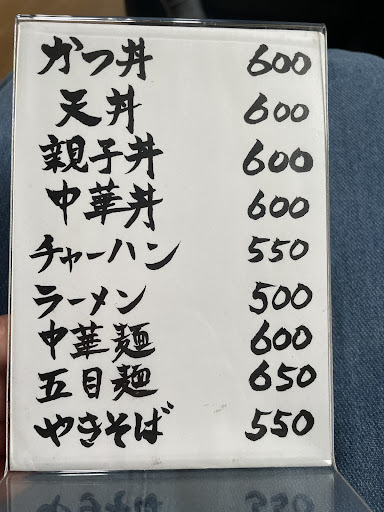 かつ丼 600
天丼 600
親子丼 600
中華丼 600
チャーハン 550
ラーメン 500
中華麺 600
五目麺 650
やきそば 550